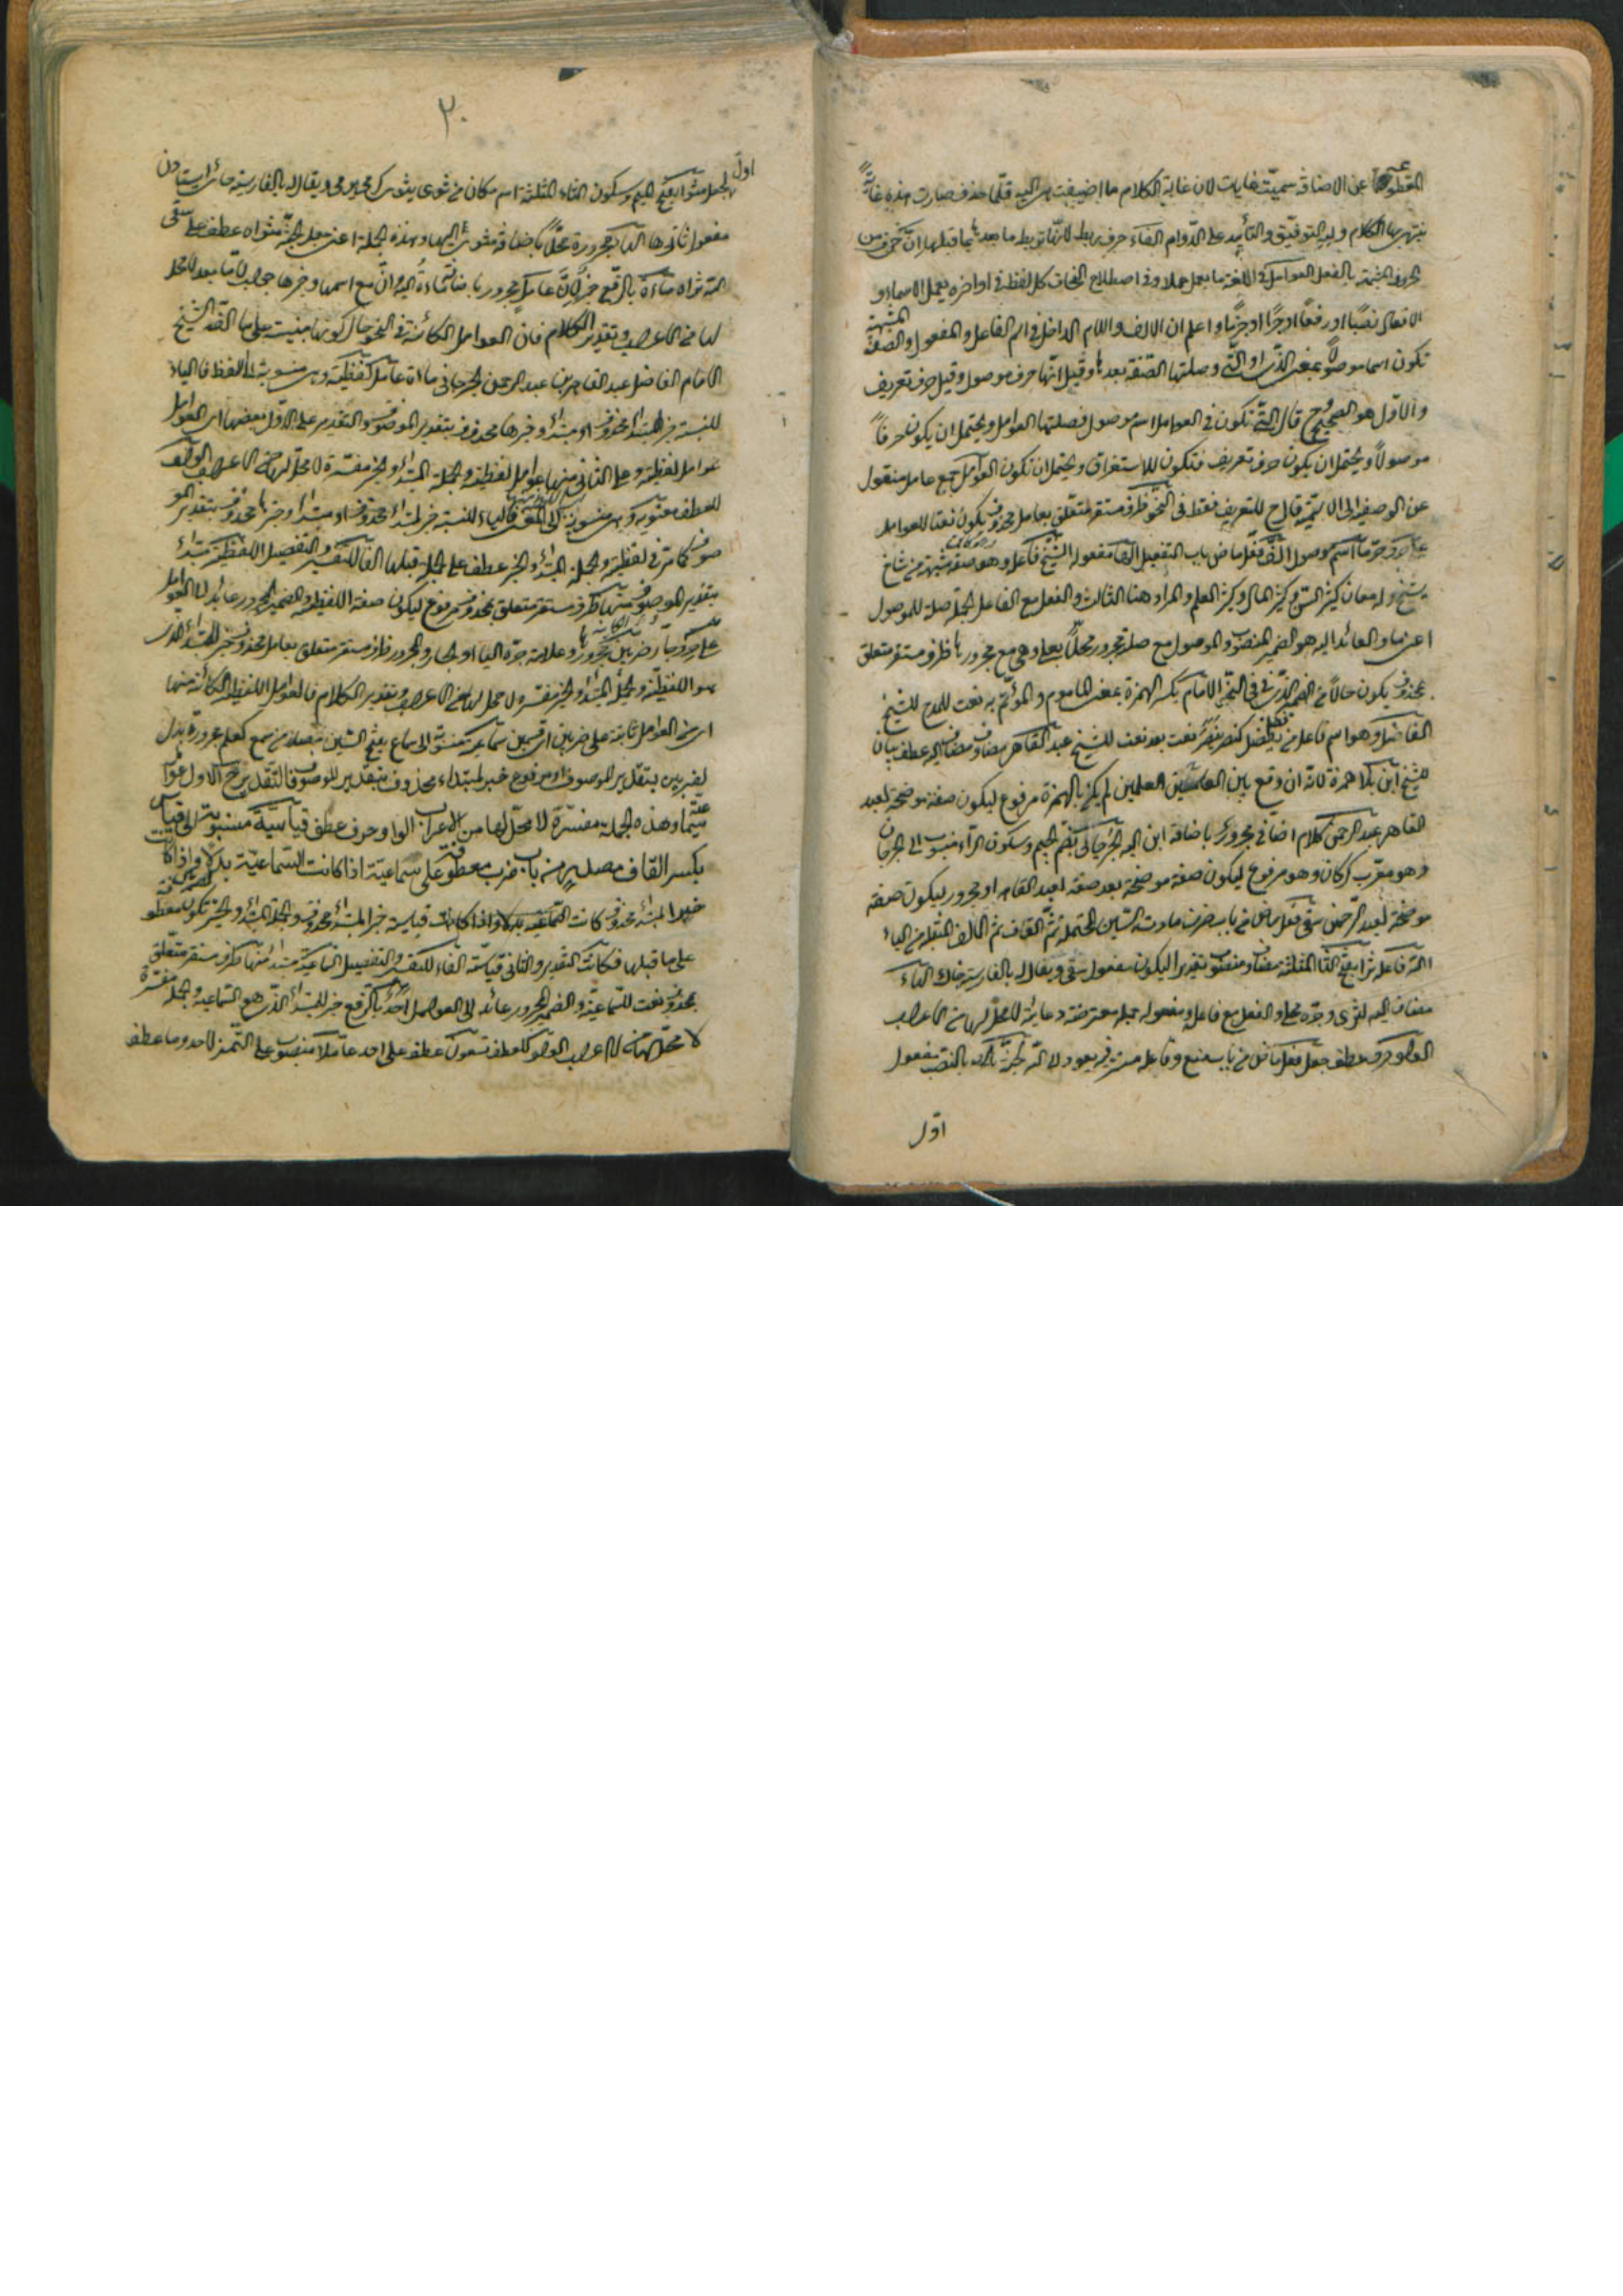 المقطوعة عن الاضافة سميت غايات لان غاية الكلام ما اضيفت هى اليه فلما حذف صارت هذه غاية
ينتهى بها الكلام وبه التوفيق والتأييد على الدوام الفاء حرف ربط لانها تربط ما بعدها بما قبلها ان حرف من
الحروف المشبهة بالفعل العوامل فى اللغة ما يعمل عملا وفى اصطلاح النحات كل لفظ فى اواخره يعمل الاسماء و
الافعال نصبًا او رفعًا او جرًّا او جزمًا واعلم ان الالف واللام الداخل فى اسم الفاعل والمفعول والصفة المشبهة
تكون اسما موصولا بمعنى الذى او التى وصلتها الصفة بعدها وقيل انها حرف موصول وقيل حرف تعريف
والاول هو الصحيح التى تكون فى العوامل اسم موصول فصلتها العوامل ويحتمل ان يكون حرفًا
موصولًا ويحتمل ان يكون حرف تعريف فتكون للاستغراق ويحتمل ان تكون العوامل جمع عامل منقول
عن الوصفية الى الاسمية للتعريف فقط فى النحو ظرف مستقر متعلق بعامل محذوف يكون نعتا للعوامل
على حرف جر ما اسم موصول الف فعل ماض باب التفعيل مفعوله الشيخ فاعل وهو صفة مشبهة من شاخ
يشيخ وله معان كثير السن وكثير المال وكثير العلم والمراد هنا الثالث والفعل مع الفاعل الجملة صلة للموصول
اعنى ما والعائد اليه هو الضمير المنصوب والموصول مع صلته مجرور محلا بعلى وهى مع مجرورها ظرف مستقر متعلق
بمحذوف يكون حالًا من الضمير الذى فى فى النحو الامام بكسر الهمزة بمعنى المأموم والمؤتم به نعت للمدح للشيخ
الفاضل وهو اسم فاعل من يفضل كنصر ينصر نعت بعد نعت للشيخ عبد القاهر مضاف ومضاف اليه عطف بيان
للشيخ ابن بلا همزة لانه ان وقع بين العلمين لم يكن بالهمزة مرفوع ليكون صفة موضحة لعبد
القاهر عبد الرحمن كلام اضافى مجرور باضافة ابن اليه الجرجانى بضم الجيم وسكون الراء منسوب الى الجرجان
وهو معرب كركان وهو مرفوع ليكون صفة موضحة بعد صفة لعبد القاهر او مجرور ليكون صفة
موضحة لعبد الرحمن سقى فعل ماض من باب ضرب مادته السين المهملة ثم القاف ثم الالف المنقلبة من الياء
الله فاعله ثرا بفتح الثا المثلثة مضاف ومنصوب تقديرا ليكون مفعول سقى ويقال له بالفارسية خاك الهاء
مضاف اليه لثرى وجره محلى والفعل مع فاعله ومفعوله جملة معترضة دعائية لا محل لها من الاعراب
الواو حرف عطف جعل فعل ماض من باب منع وفاعله مستتر فيه يعود الى الله الجنة بالنصب مفعول
اول
٢٠
اول لجعل مثوا بفتح الميم وسكون الثاء المثلثة اسم مكان من ثوى يثوى ويقال له بالفارسية جاى ايستادن
مفعول ثان لها الهاء مجرورة محلًا باضافة مثوى اليها وهذه الجملة اعنى جعل الجنة مثواه عطف على سقى
الله ثراه مائة بالرفع خبر لان عامل مجرور باضافة مائة اليه وان مع اسمها وخبرها جواب لاما بعد لا محل
لها من الاعراب وتقدير الكلام فان العوامل الكائنة فى النحو حال كونها مبنيت على ما الفه الشيخ
الامام الفاضل عبد القاهر بن عبد الرحمن الجرجانى مائة عامل لفظية وهى منسوبة الى اللفظ فالياء
للنسبة خبر لمبتدأ محذوف او مبتدأ وخبرها محذوف بتقدير الموصوف والتقدير على الاول بعضها اى العوامل
عوامل لفظية وعلى الثانى منها عوامل لفظية والجملة المبتدأ والخبر مفسرة لا محل لها من الاعراب الواو
للعطف معنوية وهى منسوبة الى المعنى فالياء للنسبة خبر لمبتدأ محذوف او مبتدأ وخبرها محذوف بتقدير المو
صوف كما مر فى لفظية والجملة المبتدأ والخبر عطف على الجملة قبلها الفا للتفسير والتفصيل اللفظية مبتدأ
بتقدير الموصوف منها ظرف مستقر متعلق بمحذوف مرفوع ليكون صفة اللفظية والضمير المجرور عائد الى العوامل
على حرف جر ضربين مجرور وعلامة جره الياء والجار والمجرور ظرف مستقر متعلق بعامل محذوف خبر للمبتدأ الذى
هو اللفظية وجملة المبتدأ والخبر مفسرة ولا محل لها من الاعراب وتقدير الكلام فالعوامل اللفظية الكائنة منها
اى من العوامل ثابتة على ضربين اى قسمين سماعية منسوبة الى سماع مصدر من سمع كعلم مجرورة بدل
لضربين بتقدير الموصوف او مرفوع خبر لمبتداء محذوف بتقدير الموصوف فالتقدير الاول
وهذه الجملة مفسرة لا محل لها من الاعراب الواو حرف عطف قياسية منسوبة الى قياس
بكسر القاف مصدر من باب ضرب معطوف على سماعية اذا كانت السماعية بدلا واذا كانت
خبر المبتدأ محذوف كانت قياسية خبر المبتدأ محذوف وجملة المبتدأ والخبر تكون معطوف
على ما قبلها فكانت التقدير والثانى قياسية الفاء للتفسير والتفصيل السماعية مبتدأ منها ظرف مستقر متعلق
بمحذوف نعت للسماعية والضمير المجرور عائد الى العوامل احد بالرفع خبر للمبتدأ الذى هو السماعية والجملة مفسرة
لا محل لها من الاعراب الواو للعطف تسعون عطف على احد عاملا منصوب على التميز لاحد وما عطف